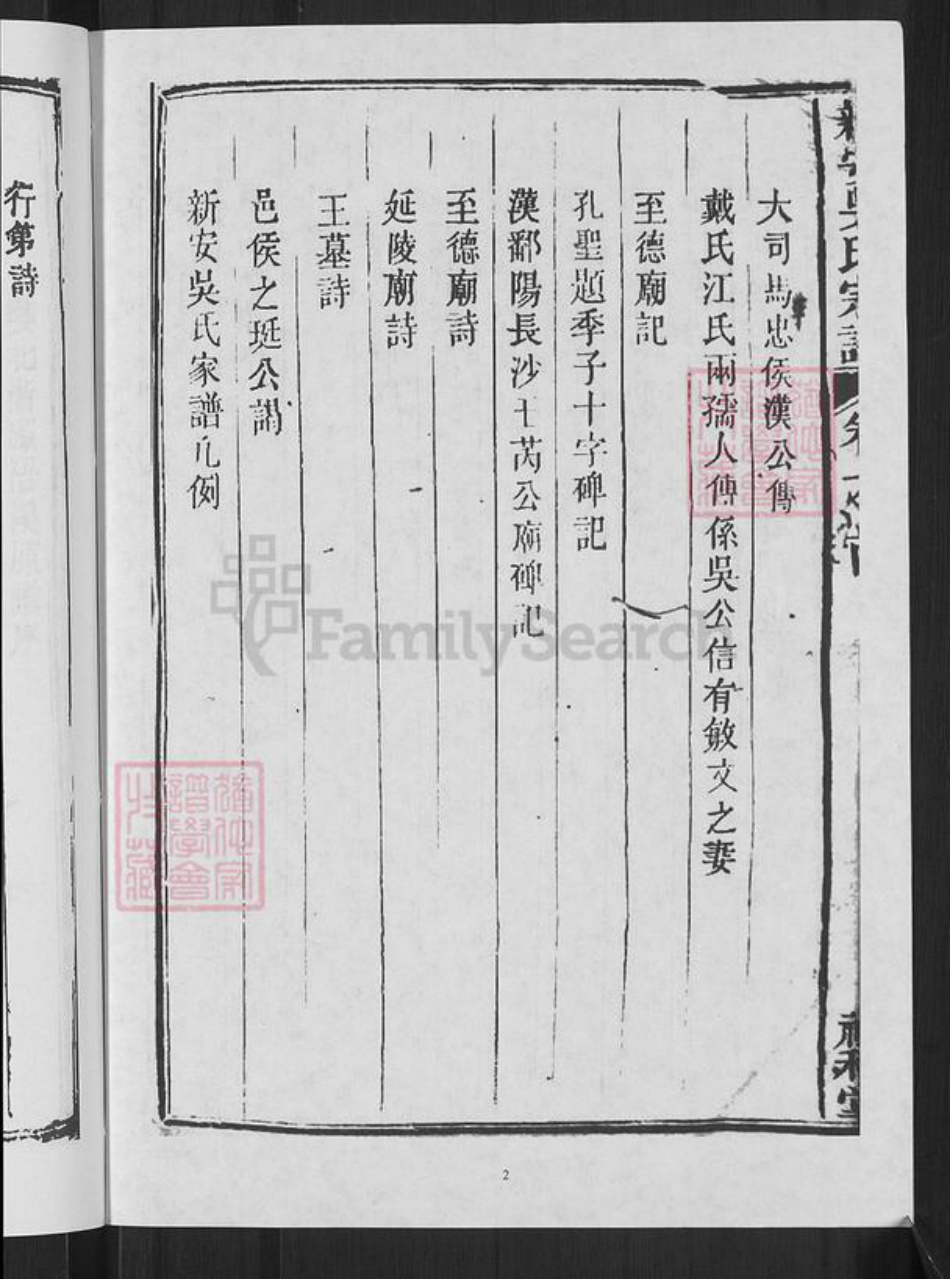 新安吳氏宗譜
大司馬忠侯漢公傳
戴氏江氏兩孺人傳係吳公信有敏文之妻
至德廟記
孔聖題季子十字碑記
漢鄱陽長沙王芮公廟碑記
至德廟詩
延陵廟詩
王墓詩
邑侯之珽公謁
新安吳氏家譜凡例
行第詩
譜學會
FamilySearch
2